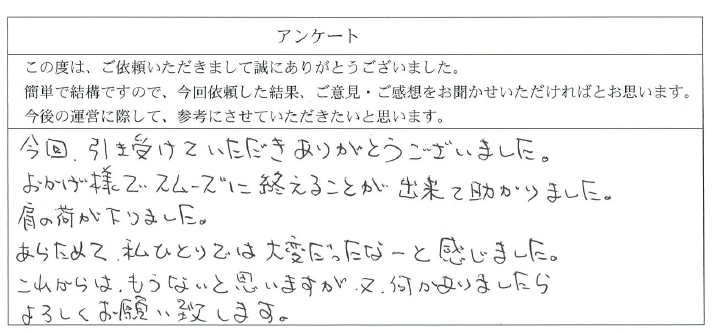 アンケート
この度は、ご依頼いただきまして誠にありがとうございました。
簡単で結構ですので、今回依頼した結果、ご意見・ご感想をお聞かせいただければとお思います。
今後の運営に際して、参考にさせていただきたいと思います。
今回、引き受けていただきありがとうございました。
おかげ様でスムーズに終えることが出来て助かりました。
肩の荷が下りました。
あらためて、私ひとりでは大変だったなーと感じました。
これからは、もうないと思いますが、又、何かありましたら
よろしくお願い致します。